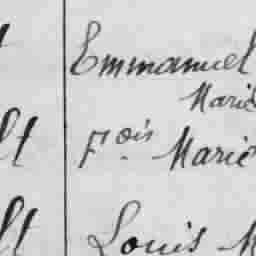 Emmanuel
Marie
Fois Marie
lt
Louis M
lt